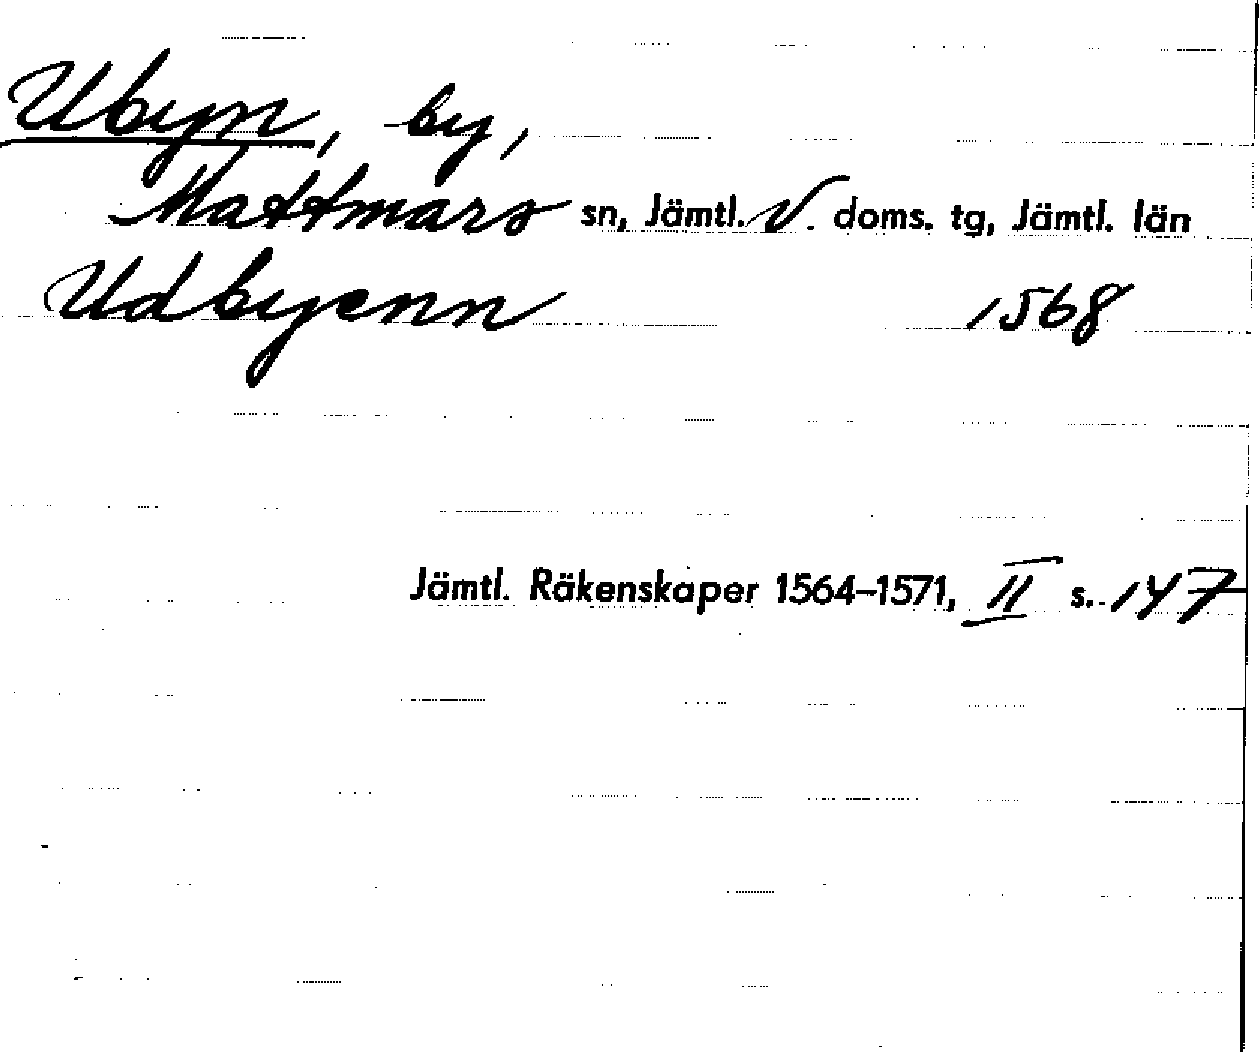 Ubyn, by,
Mattmars sn, Jämtl. V. doms. tg, Jämtl. län
Udbyenn 1568
Jämtl. Räkenskaper 1564–1571, II s. 147